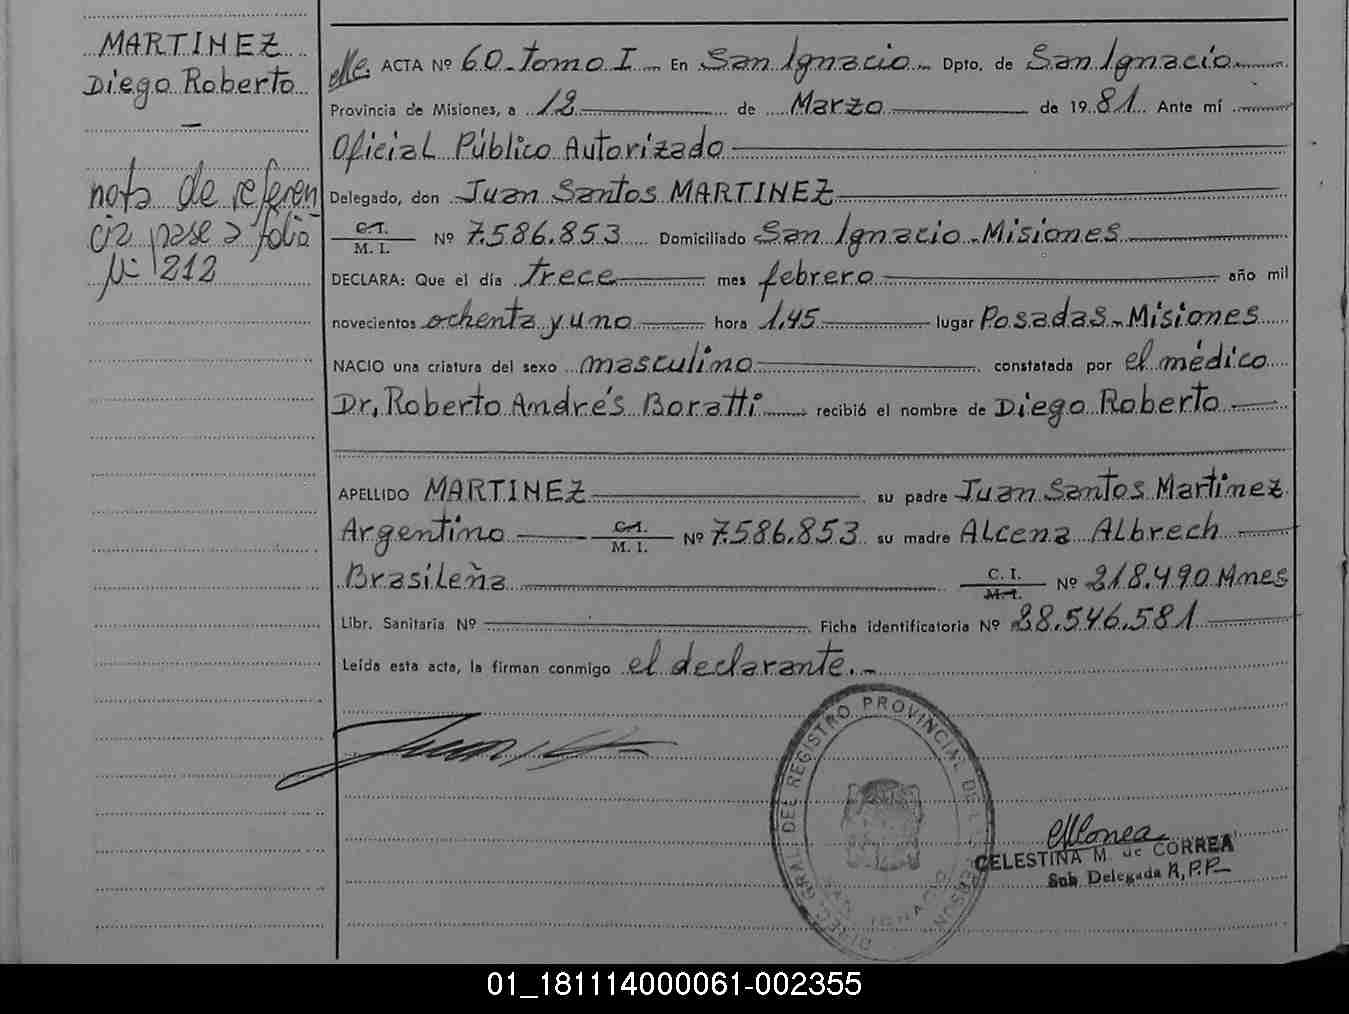 MARTINEZ
Diego Roberto
nota de referen
cia pase a folio
Nº 212
ACTA Nº 60 - tomo I En San Ignacio - Dpto. de San Ignacio
Provincia de Misiones, a 12 de Marzo de 1981. Ante mí
Oficial Público Autorizado
Delegado, don Juan Santos MARTINEZ
C. I.
M. I. Nº 7.586.853 Domiciliado San Ignacio - Misiones
DECLARA: Que el día trece mes febrero año mil
novecientos ochenta y uno hora 1.45 lugar Posadas - Misiones
NACIO una criatura del sexo masculino constatada por el médico
Dr. Roberto Andrés Boratti recibió el nombre de Diego Roberto
APELLIDO MARTINEZ su padre Juan Santos Martinez
Argentino C. I. M. I. Nº 7.586.853 su madre Alcena Albrech
Brasileña C. I. M. I. Nº 218.490 Mnes
Libr. Sanitaria Nº Ficha identificatoria Nº 28.546.581
Leída esta acta, la firman conmigo el declarante. -
DIREC. GRAL. DEL REGISTRO PROVINCIAL DE LAS PERSONAS
SAN IGNACIO
CELESTINA M. de CORREA
Sub Delegada R.P.P.
01_181114000061-002355